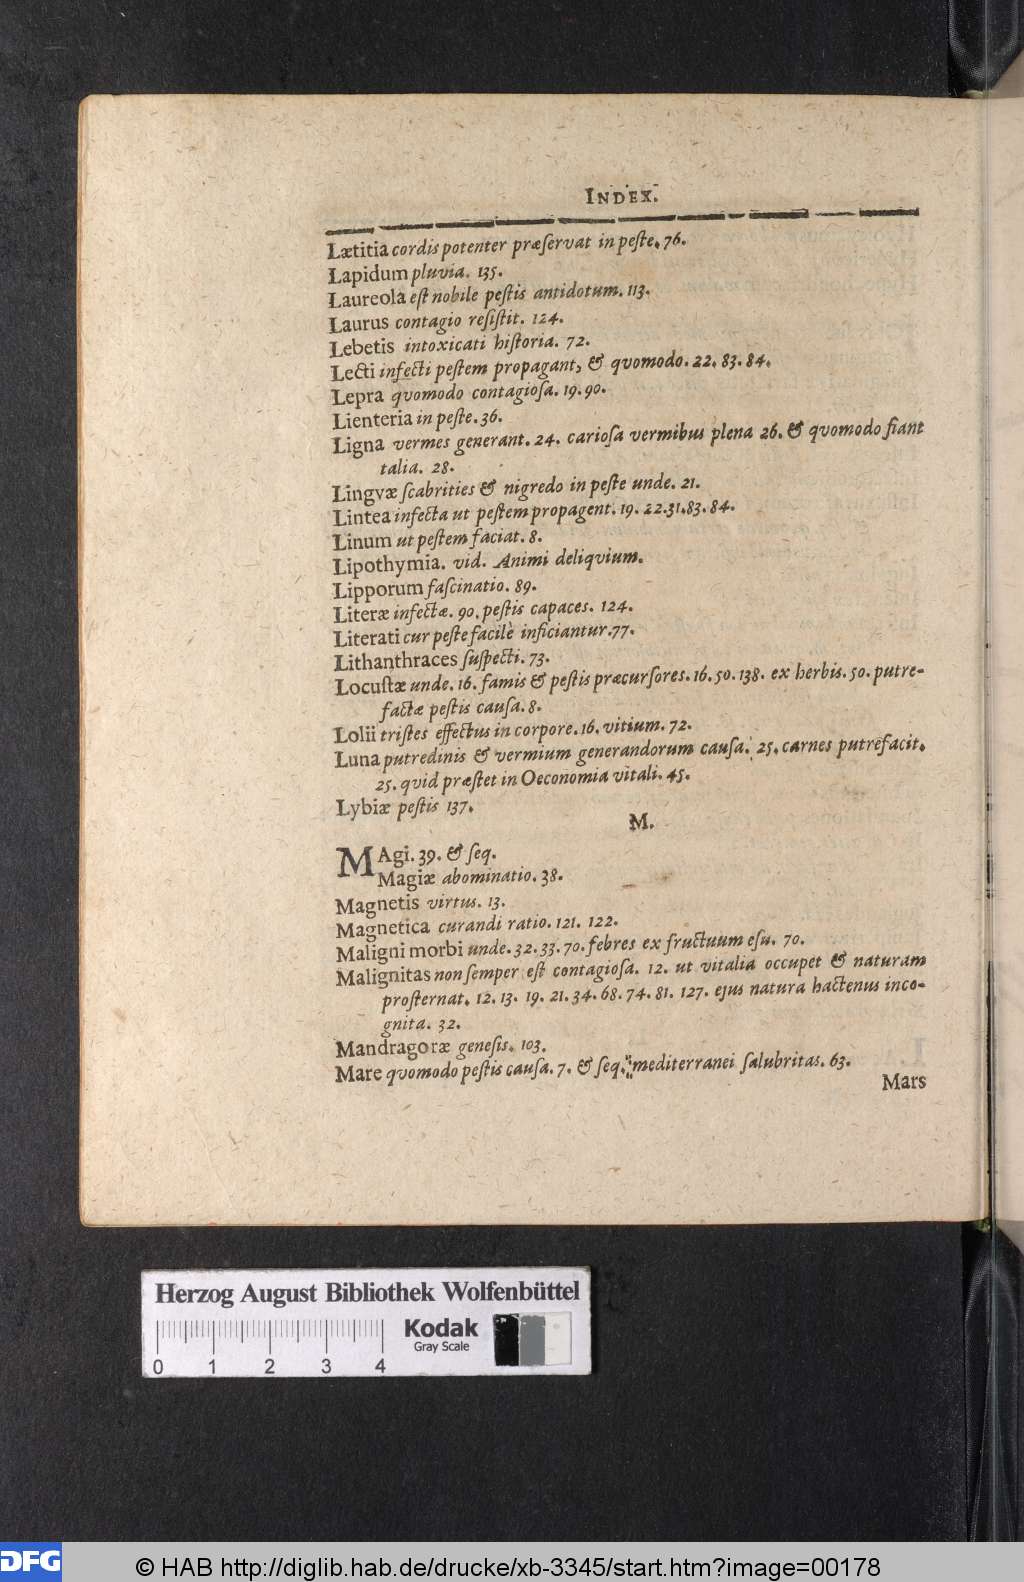 INDEX.
Lætitia cordis potenter præſervat in peſte. 76.
Lapidum pluvia. 135.
Laureola eſt nobile peſtis antidotum. 113.
Laurus contagio reſiſtit. 124.
Lebetis intoxicati hiſtoria. 72.
Lecti infecti peſtem propagant, & qvomodo. 22. 83. 84.
Lepra qvomodo contagioſa. 19. 90.
Lienteria in peſte. 36.
Ligna vermes generant. 24. carioſa vermibus plena 26. & qvomodo fiant
talia. 28.
Lingvæ ſcabrities & nigredo in peſte unde. 21.
Lintea infecta ut peſtem propagent. 19. 22. 31. 83. 84.
Linum ut peſtem faciat. 8.
Lipothymia. vid. Animi deliqvium.
Lipporum faſcinatio. 89.
Literæ infectæ. 90. peſtis capaces. 124.
Literati cur peſte facilè inficiantur. 77.
Lithanthraces ſuſpecti. 73.
Locuſtæ unde. 16. famis & peſtis præcurſores. 16. 50. 138. ex herbis. 50. putre-
factæ peſtis cauſa. 8.
Lolii triſtes effectus in corpore. 16. vitium. 72.
Luna putredinis & vermium generandorum cauſa. 25. carnes putrefacit.
25. quid præſtet in Oeconomia vitali. 45.
Lybiæ peſtis 137.
M.
MAgi. 39. & ſeq.
Magiæ abominatio. 38.
Magnetis virtus. 13.
Magnetica curandi ratio. 121. 122.
Maligni morbi unde. 32. 33. 70. febres ex fructuum eſu. 70.
Malignitas non ſemper eſt contagioſa. 12. ut vitalia occupet & naturam
proſternat. 12. 13. 19. 21. 34. 68. 74. 81. 127. ejus natura hactenus inco-
gnita. 32.
Mandragoræ geneſis. 103.
Mare qvomodo peſtis cauſa. 7. & ſeq. mediterranei ſalubritas. 63.
Mars
Herzog August Bibliothek Wolfenbüttel
Kodak
Gray Scale
0 1 2 3 4
DFG
© HAB http://diglib.hab.de/drucke/xb-3345/start.htm?image=00178